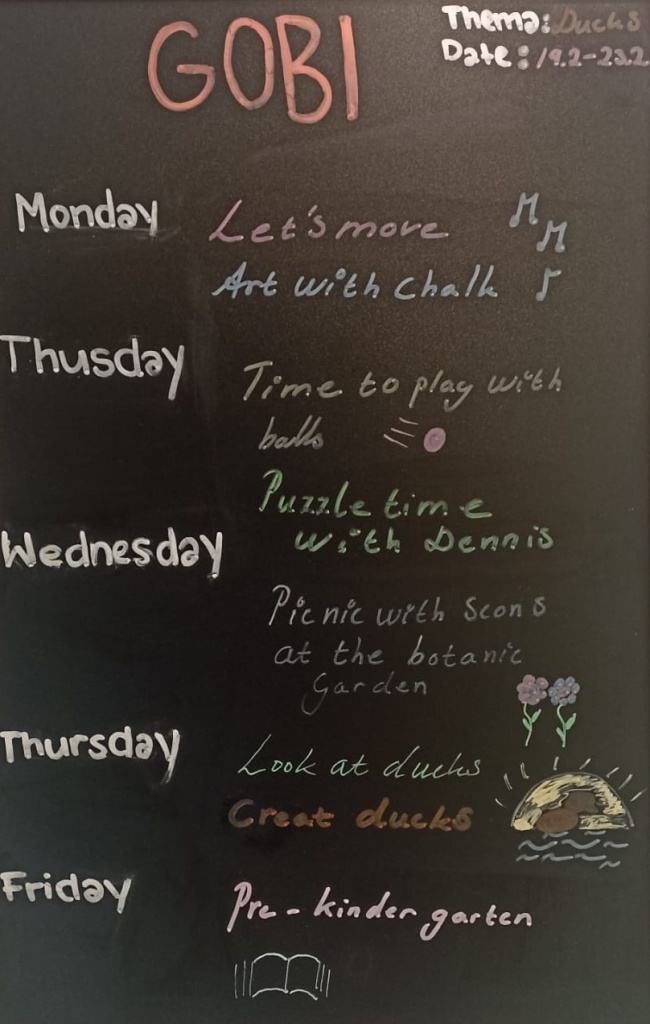 GOBI
Thema: Ducks
Date: 19.2-23.2
Monday
Let's more
Art with Chalk
Thusday
Time to play with
balls
Puzzle time
with Dennis
Wednesday
Picnic with scons
at the botanic
Garden
Thursday
Look at ducks
Creat ducks
Friday
Pre-kindergarten